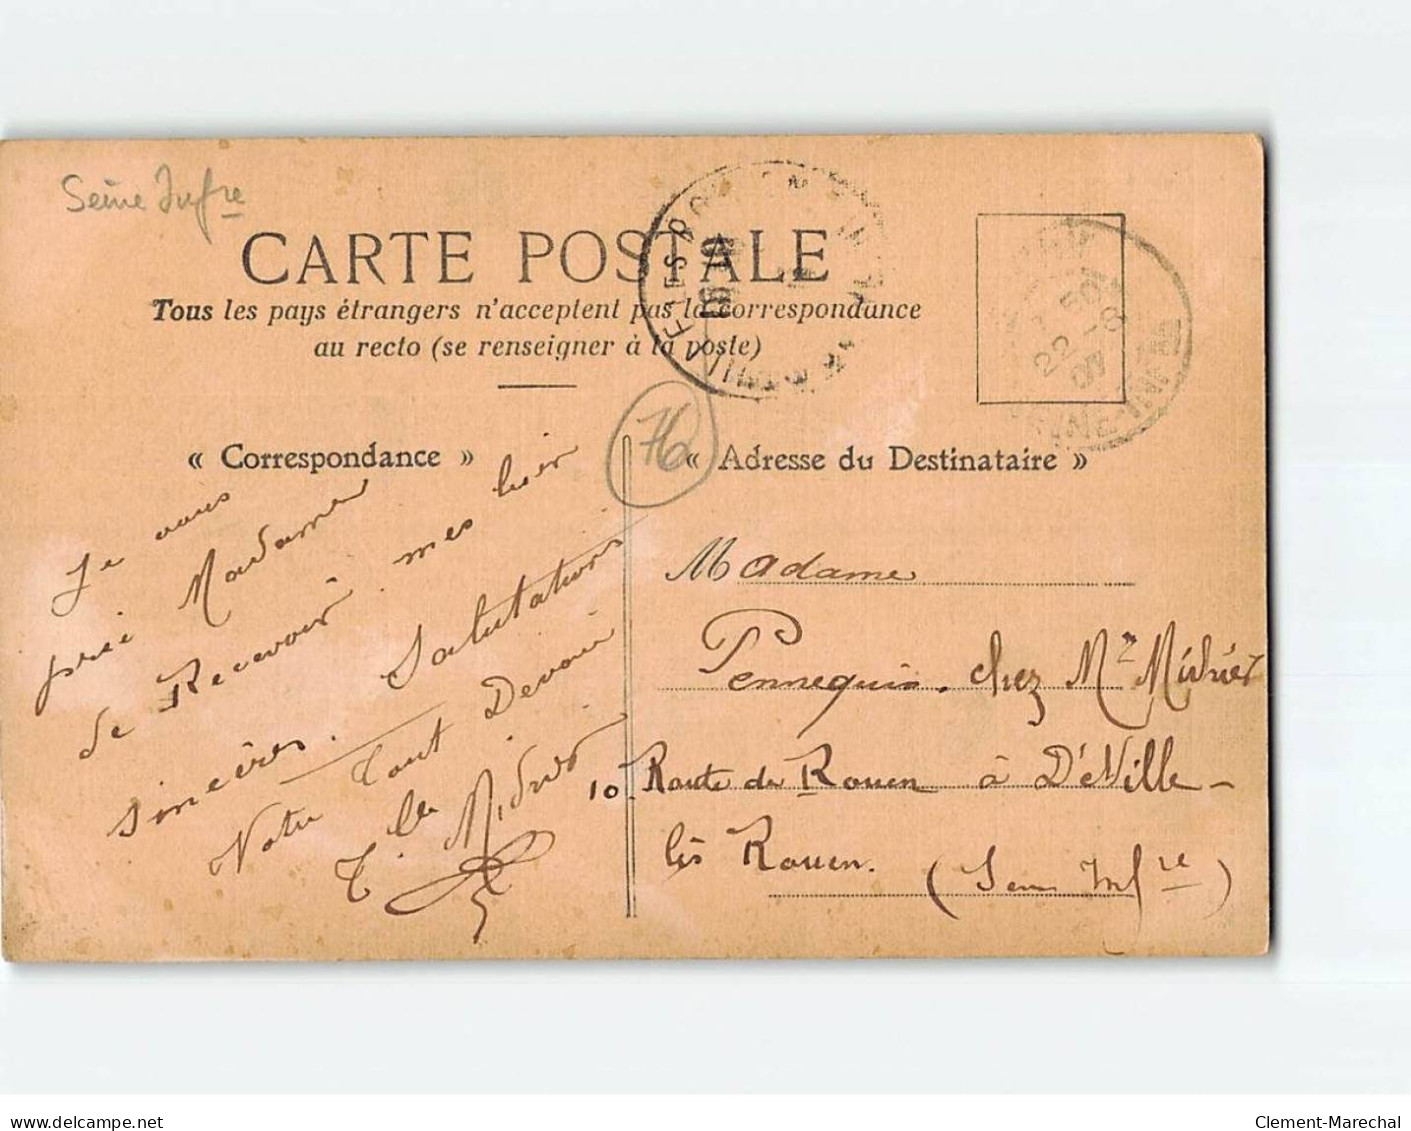 Seine Infre
CARTE POSTALE
Tous les pays étrangers n'acceptent pas la correspondance
au recto (se renseigner à la poste)
22 -8
07
76
« Correspondance »
Je vous
prie Madame
de Recevoir mes bien
sincères. Salutations
Votre tout Devoué
« Adresse du Destinataire »
Madame
Pennequin. chez Mr
10 Route de Rouen à D'éVille-
lès Rouen. (Seine Infre)
delcampe.net
Clement-Marechal